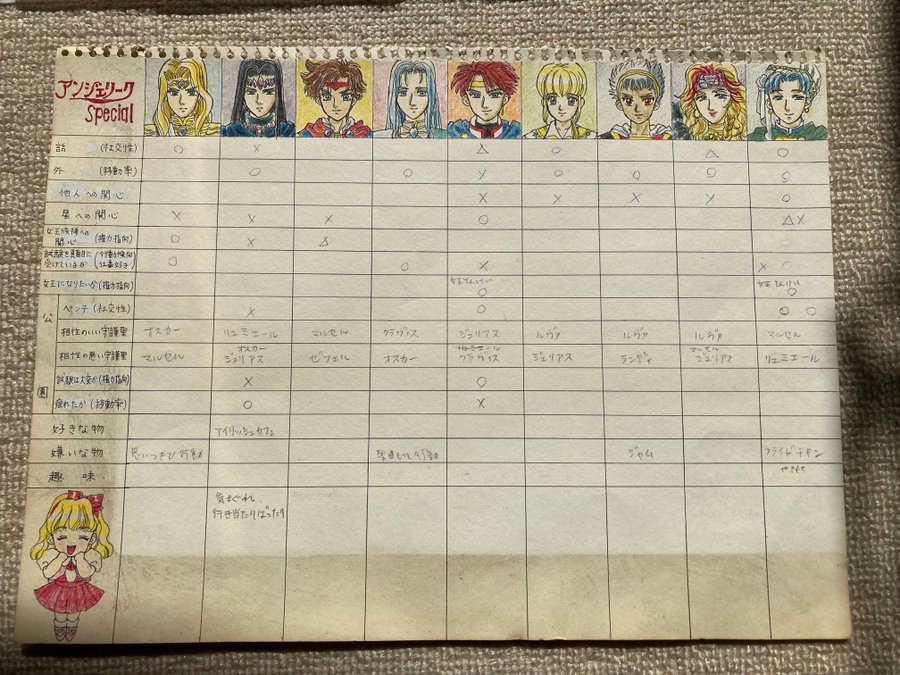 アンジェリーク
Special
話 (社交性) ○ × △ ○ △ ○
外 (移動率) ○ ○ × ○ ○ ○ ○
他人への関心 × × × × ○
星への関心 × × × ○ △×
女王候補への
関心 (権力指向) ○ × △
試験を真面目に
受けているか ○ ○ × ×
女王になりたいか (権力指向) ○ ○
公園
ベンチ (社交性) × ○ ○ ○
相性のいい守護聖 オスカー リュミエール マルセル クラヴィス ジュリアス ルヴァ ルヴァ ルヴァ マルセル
オスカー
相性の悪い守護聖 マルセル ジュリアス ゼフェル オスカー クラヴィス ジュリアス ランディ ジュリアス リュミエール
試験は大変か (権力指向) × ○
疲れたか (移動率) ○ ×
好きな物 アイリッシュカフェ
嫌いな物 思いつきで行動 ジャム フライドチキン
趣味
気まぐれ、
行き当たりばったり